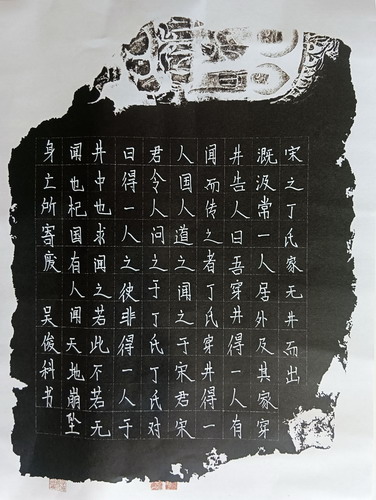 宋之丁氏家无井而出
溉汲常一人居外及其家穿
井告人曰吾穿井得一人有
闻而传之者丁氏穿井得一
人国人道之闻之于宋君宋
君令人问之于丁氏丁氏对
曰得一人之使非得一人于
井中也求闻之若此不若无
闻也杞国有人闻天地崩坠
身亡所寄废 吴俊科书